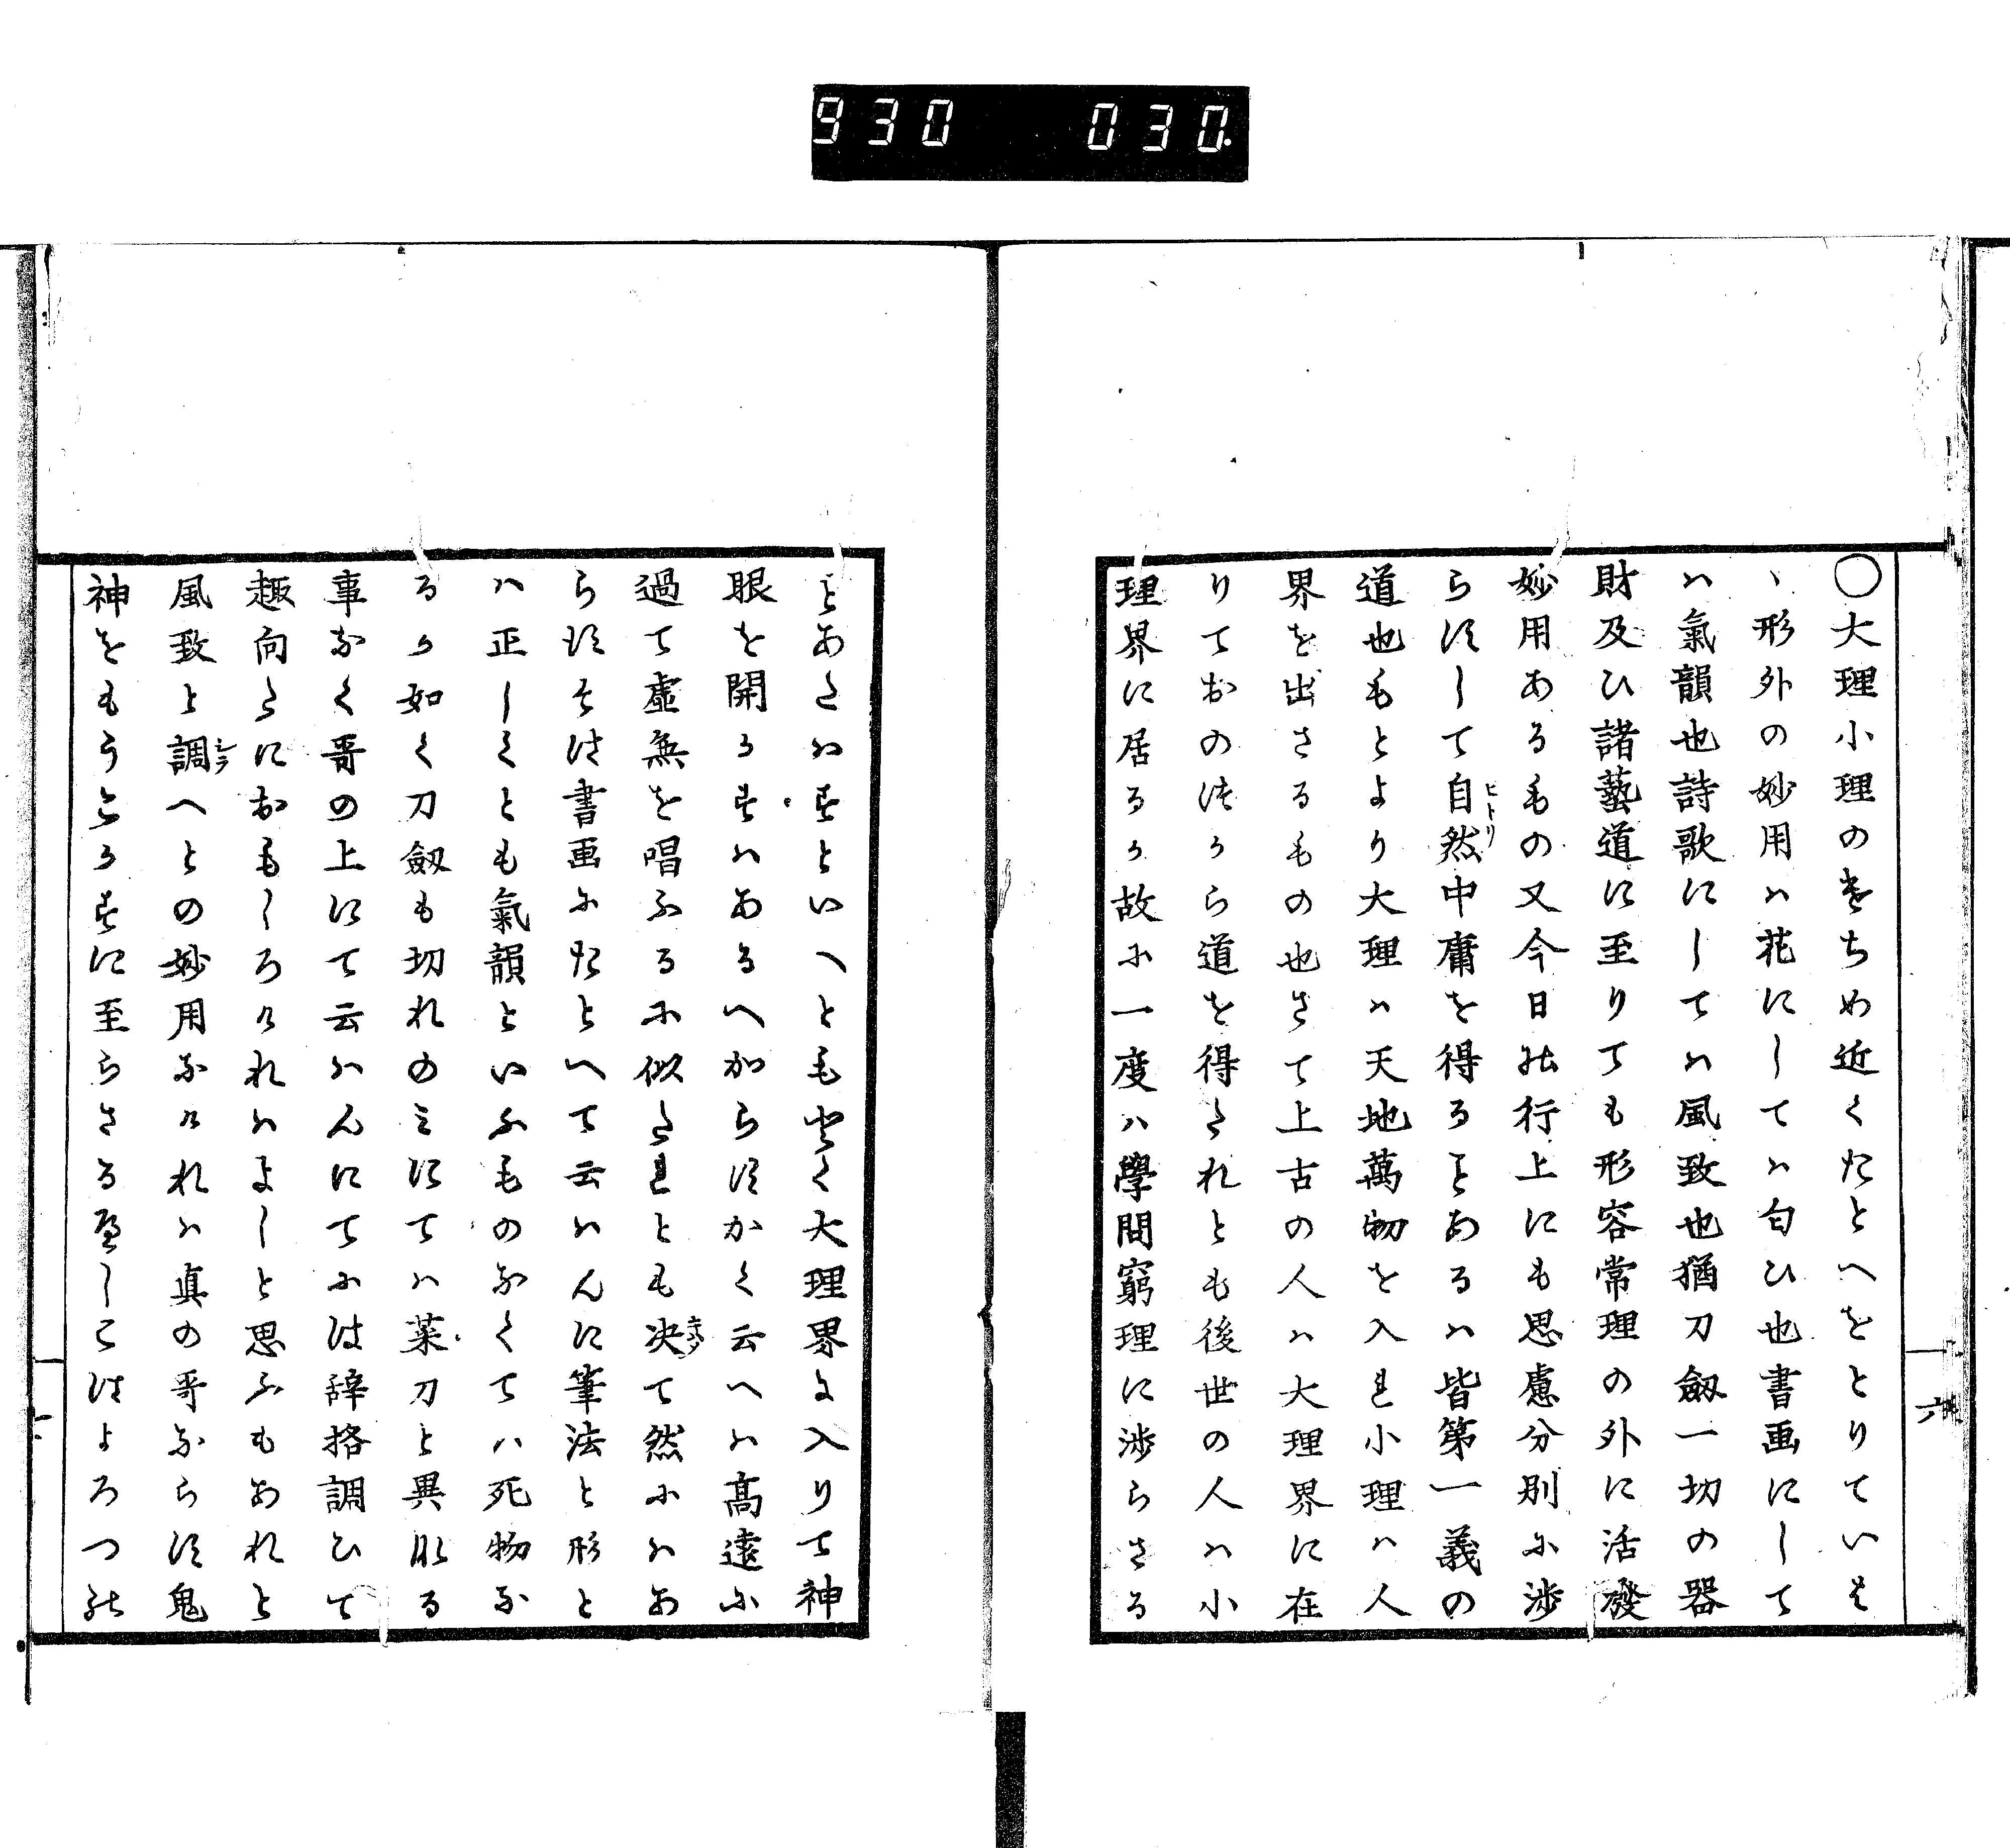 930 030
〇大理小理のけちめ近くたとへをとりていはゝ
ゝ形外の妙用ハ花にしてハ匂ひ也書画にして
ハ氣韻也詩歌にしてハ風致也猶刀劔一切の器
財及ひ諸藝道に至りても形容常理の外に活發
妙用あるもの又今日の行上にも思慮分別に渉
らすして自然ヒトリ中庸を得ることあるハ皆第一義の
道也もとより大理ハ天地萬物を入れ小理ハ人
界を出さるもの也さて上古の人ハ大理界に在
りておのつから道を得たれとも後世の人ハ小
理界に居るか故に一度ハ學問窮理に渉らさる
六
ことあたハすといへとも遂く大理界に入りて神
眼を開かすハあるへからすかく云へハ高遠に
過て虚無を唱ふるに似たれとも决キハメて然にハあ
らすそは書画にたとへて云ハんに筆法と形と
ハ正しくとも氣韻といふものなくてハ死物な
るか如く刀劔も切れのみにてハ菜刀と異なる
事なく哥の上にて云ハんにてには辞格調ひて
趣向たにおもしろけれハよしと思ふもあれと
風致と調シラへとの妙用なけれハ真の哥ならす鬼
神をもうこかすに至らさるへしこはよろつの